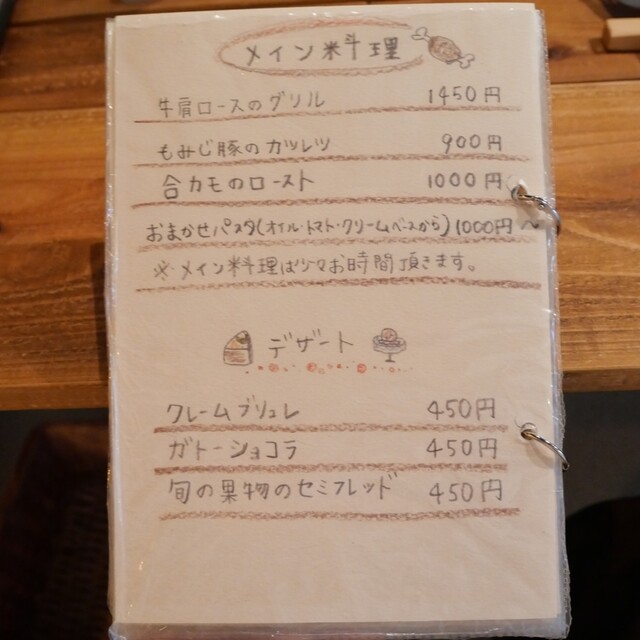 メイン料理
牛肩ロースのグリル 1450円
もみじ豚のカツレツ 900円
合カモのロースト 1000円
おまかせパスタ(オイル・トマト・クリームベースから) 1000円〜
※メイン料理は少々お時間頂きます。
デザート
クレームブリュレ 450円
ガトーショコラ 450円
旬の果物のセミフレッド 450円